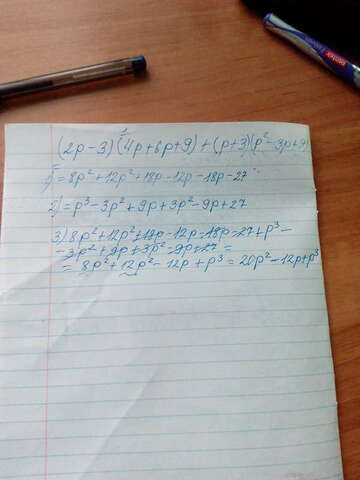 1
(2p-3)(4p+6p+9)+(p+3)(p²-3p+9)
1) =8p²+12p²+18p-12p-18p-27
2) =p³-3p²+9p+3p²-9p+27
3) 8p²+12p²+18p-12p-18p-27+p³-
-3p²+9p+3p²-9p+27=
=8p²+12p²-12p+p³=20p²-12p+p³